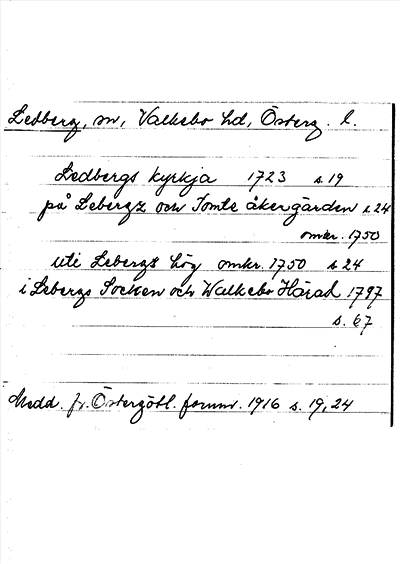 Ledberg, sn, Valkebo hd, Österg. l.
Ledbergs kyrkja 1723 s. 19
på Lebergz och Tomte åkergärden s. 24
omkr. 1750
uti Lebergs hög omkr. 1750 s. 24
i Lebergs Socken och Walkebo Härad 1797
s. 67
Medd. fr. Östergötl. fornm. 1916 s. 19, 24